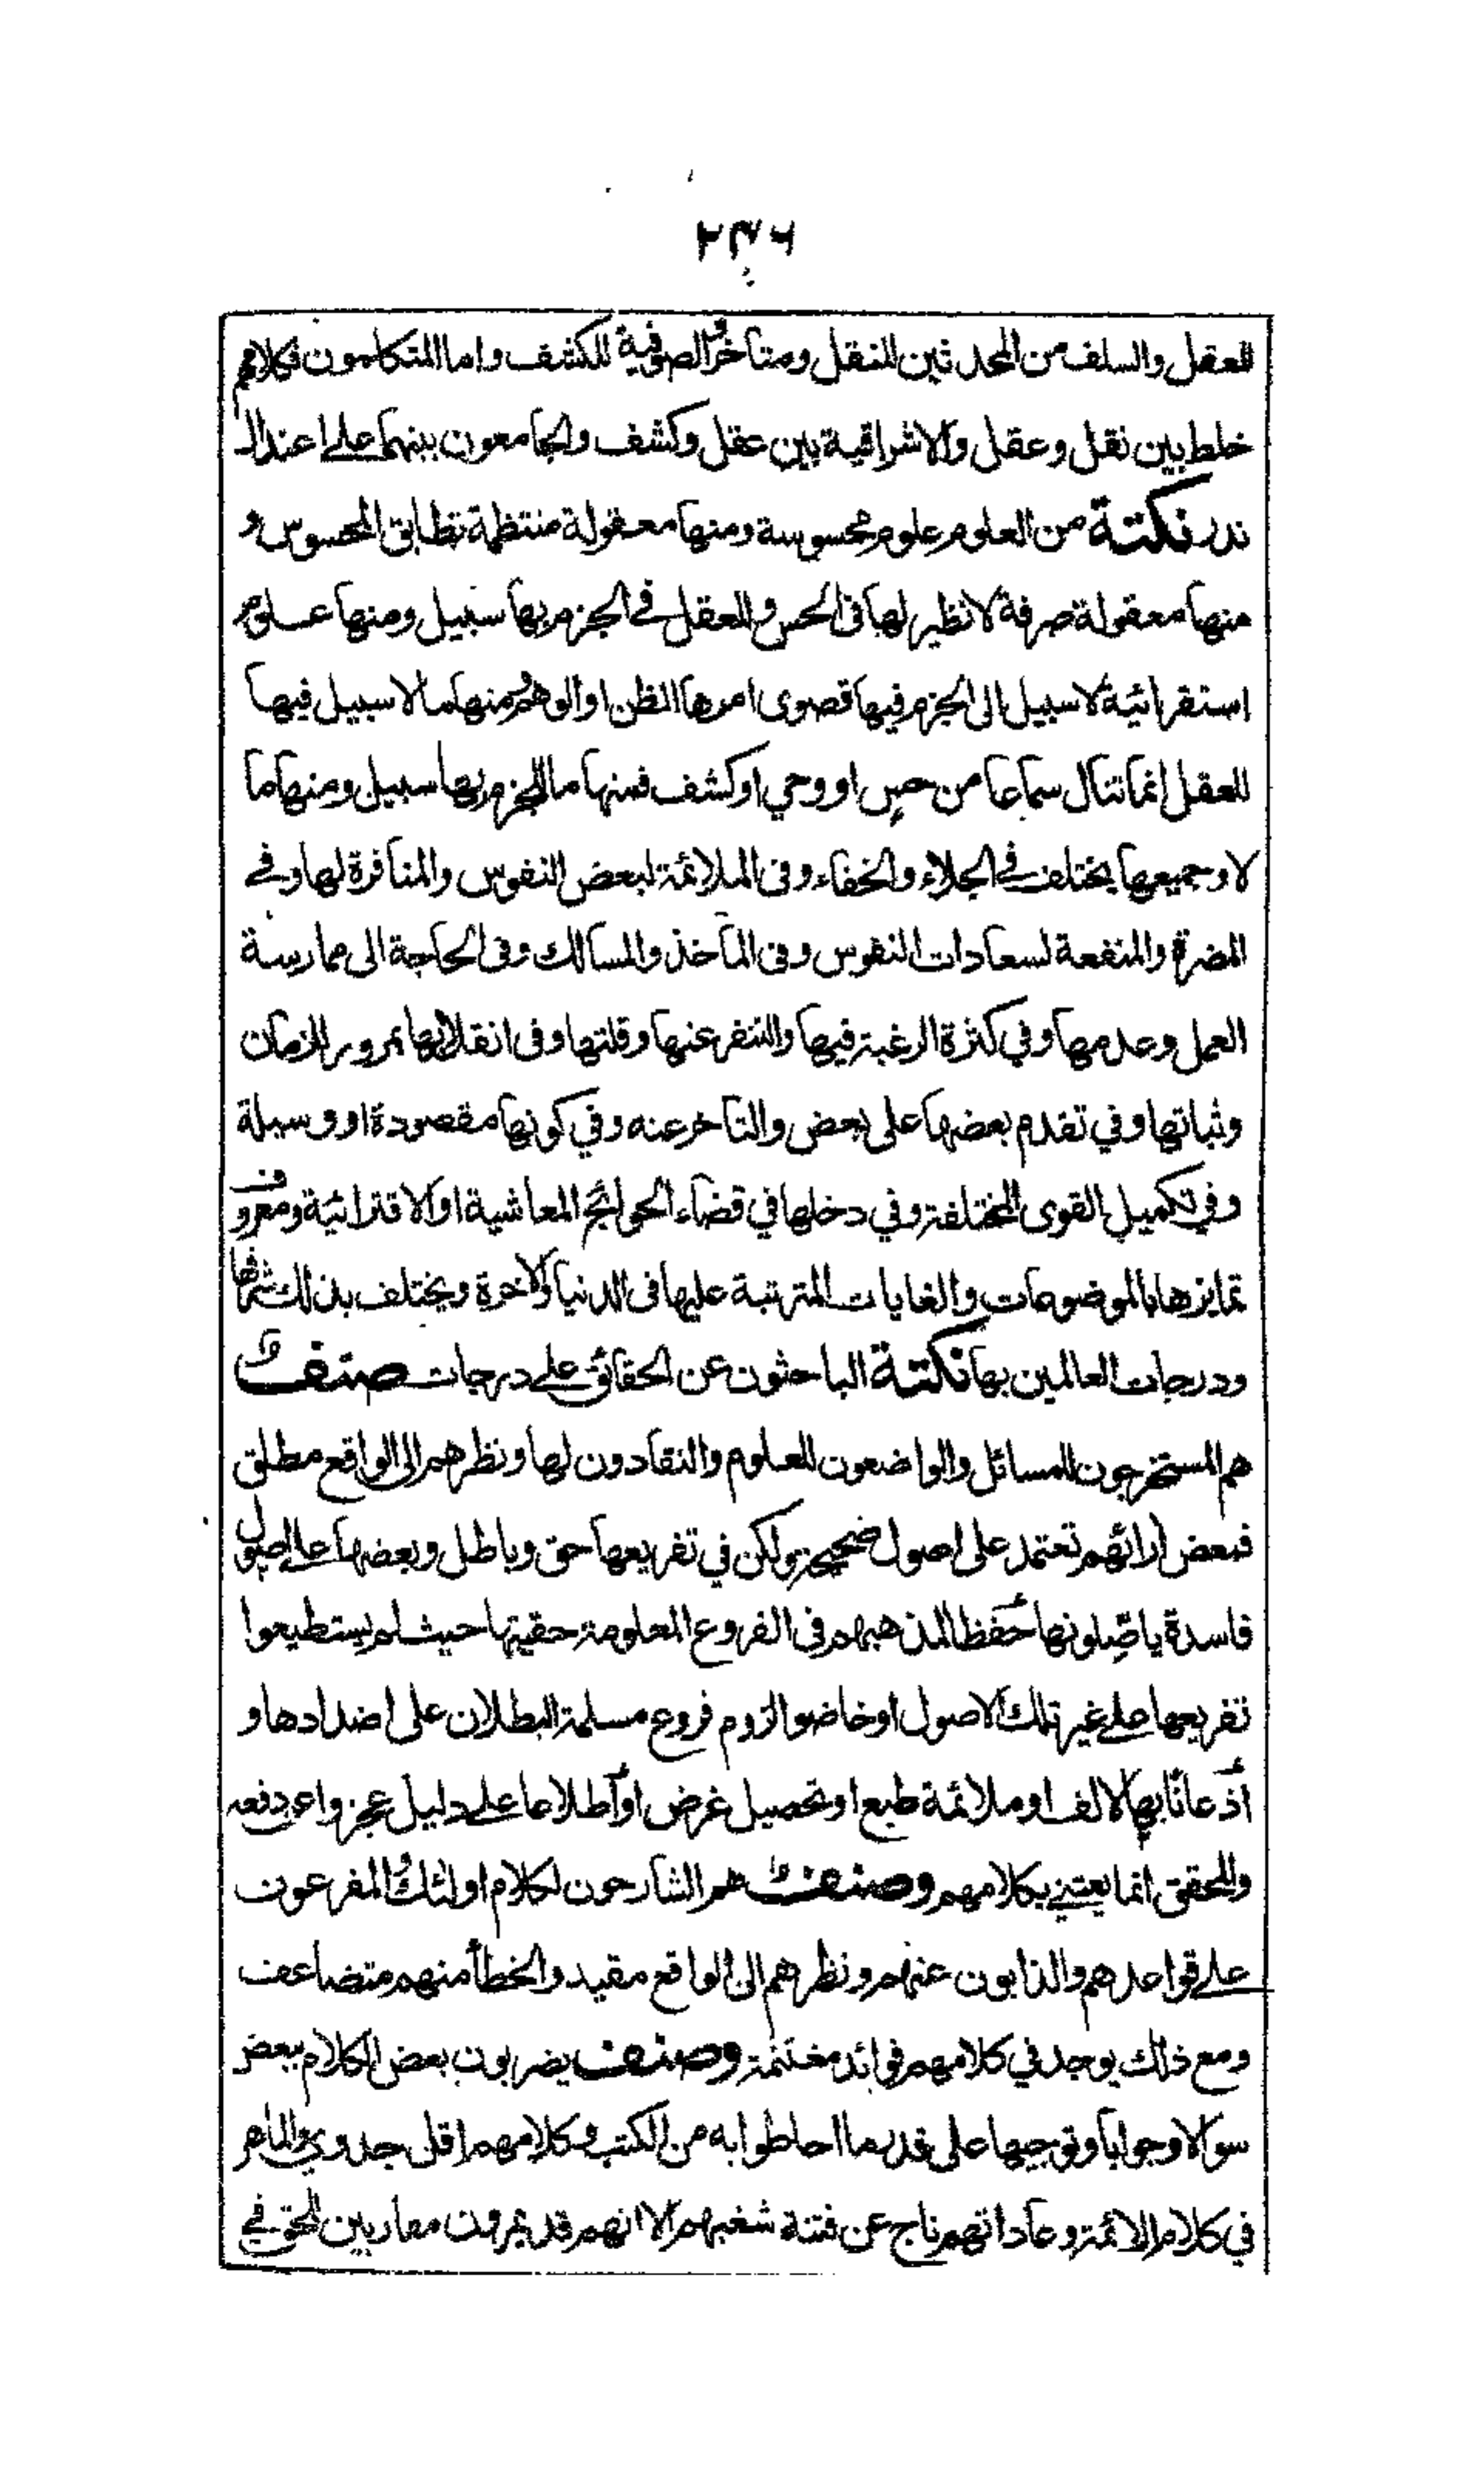 ٢٣٦
للعقل والسلف من المحدثين للنقل ومتأخروا الصوفية للكشف واما المتكلمون فكلامهم
خلط بين نقل وعقل والاشراقية بين عقل وكشف والجامعون بينهما على اعتدال
ندر نكتة من العلوم علوم محسوسة ومنها معقولة منتظمة تطابق المحسوس و
منها معقولة صرفة لا نظير لها فى الحس وللعقل في الجزم بها سبيل ومنها علوم
استقرائية لا سبيل الى الجزم فيها قصوى امرها الظن او الوهم ومنها ما لا سبيل فيها
للعقل انما تنال سماعا من حس او وحي او كشف فمنها ما للجزم بها سبيل ومنها ما
لا وجميعها يختلف في الجلاء والخفاء وفى الملائمة لبعض النفوس والمنافرة لها وفي
المضرة والمنفعة لسعادات النفوس وفى المآخذ والمسالك وفى الحاجة الى ممارسة
العمل وعدمها وفي كثرة الرغبة فيها والتنفر عنها وقلتها وفى انقلابها بمرور الزمان
وثباتها وفي تقدم بعضها على بعض والتأخر عنه وفي كونها مقصودة او وسيلة
وفي تكميل القوى المختلفة وفي دخلها في قضاء الحوائج المعاشية او الاقترابية ومعروف
تمايزها بالموضوعات والغايات المترتبة عليها فى الدنيا والاخرة ويختلف بذلك شرفها
ودرجات العالمين بها نكتة الباحثون عن الحقائق على درجات صنف
هم المستخرجون للمسائل والواضعون للعلوم والنقادون لها ونظرهم الى الواقع مطلق
فبعض ارائهم تعتمد على اصول صحيحة ولكن في تفريعها حق وباطل وبعضها على اصول
فاسدة ياصلونها حفظا لمذهبهم فى الفروع المعلومة حقيتها حيث لم يستطيعوا
تفريعها على غير تلك الاصول او خاضوا لزوم فروع مسلمة البطلان على اضدادها و
اذعانا بها لالف او ملائمة طبع او تحصيل غرض او اطلاعا على دليل عجزوا عن دفعه
والمحقق انما يعتني بكلامهم وصنف هم الشارحون لكلام اولئك والمفرعون
على قواعدهم والذابون عنهم ونظرهم الى الواقع مقيد والخطأ منهم متضاعف
ومع ذلك يوجد في كلامهم فوائد مغتنمة وصنف يضربون بعض الكلام ببعض
سوالا وجوابا وتوجيها على قدر ما احاطوا به من الكتب وكلامهم اقل جدوى والماهر
في كلام الائمة وعاداتهم ناج عن فتنة شغبهم الا انهم قد يمرون معاريين للحق في